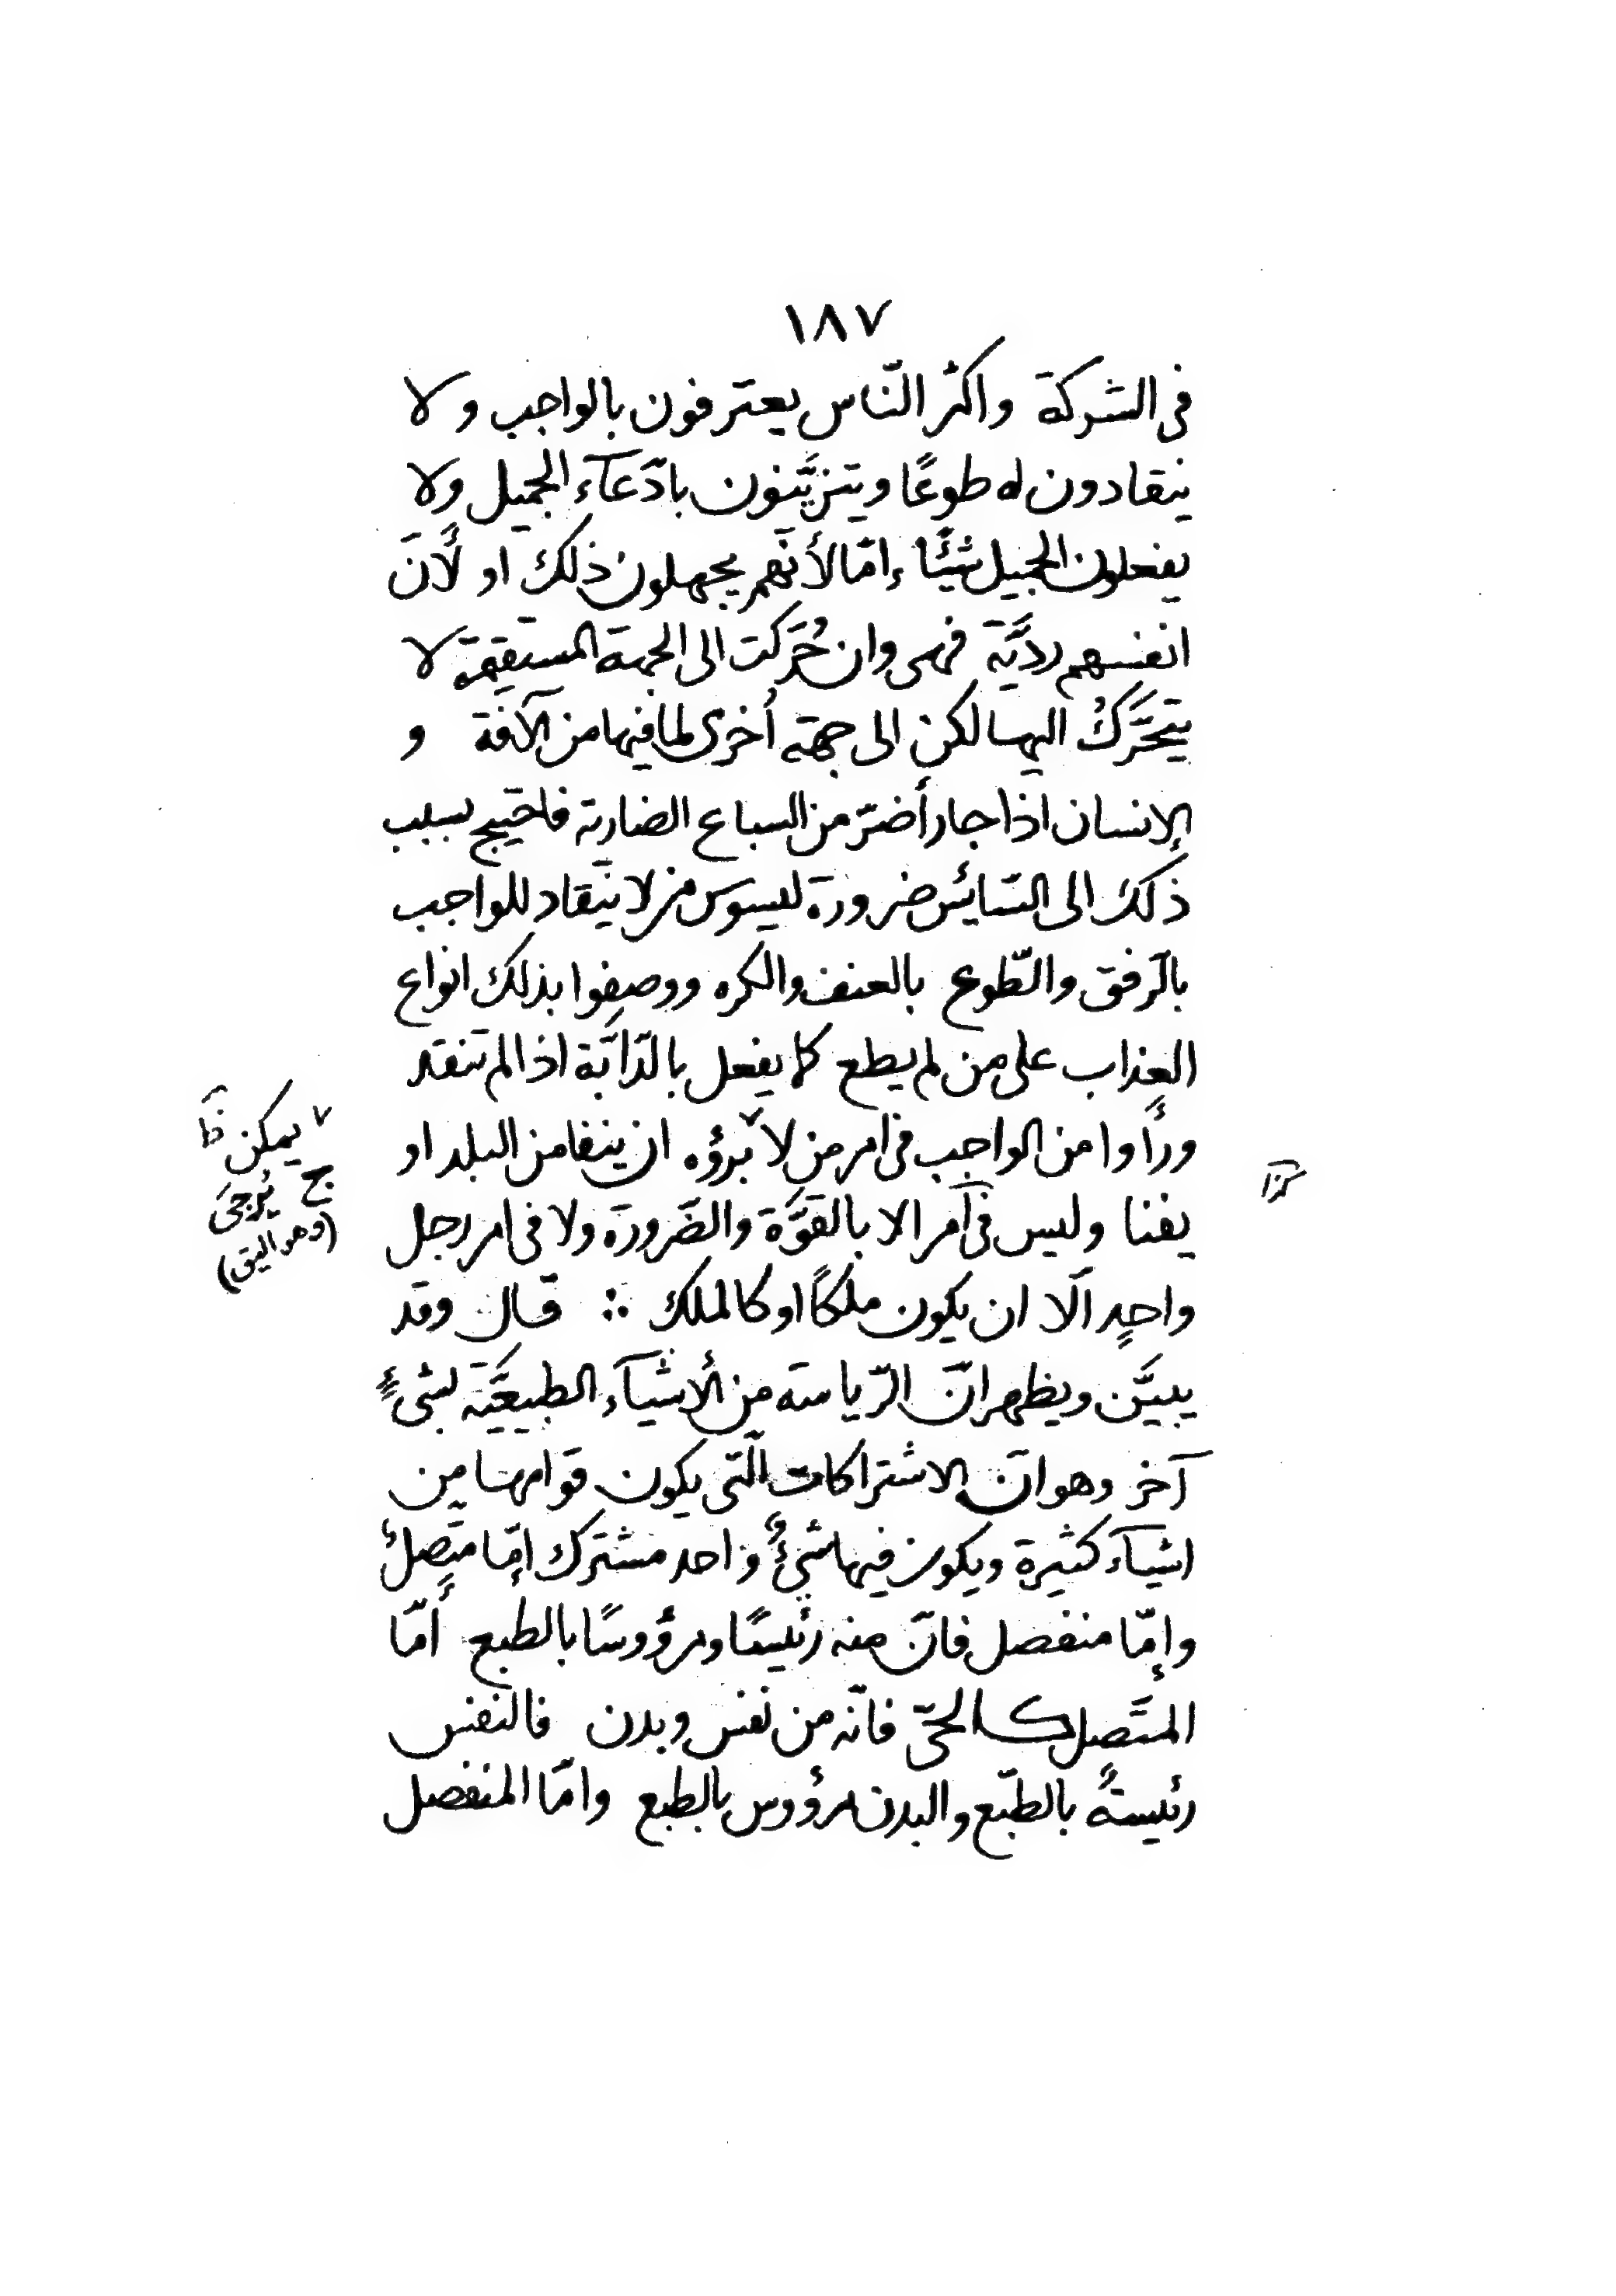 ١٨٧
فى الشركة واكثر النّاس يعترفون بالواجب ولا
ينقادون له طوعًا ويتزيَّنون بادّعآء الجميل ولا
يفعلون الجميل شيئًا ءامّا لأنّهم يجهلون ذلك او لأنّ
انفسهم رديَّة فهى وان حُرّكت الى الجهة المستقيمة لا
يتحَّركُ اليها لكن الى جهة أخرى لما فيها من الآفة و
الإنسان اذا جار أضرّ من السباع الضارية فاحتيج بسبب
ذلك الى السّائس ضرورة ليسوس من لا ينقاد للواجب
بالرّفق والطّوع بالعنف والكره ووصفوا بذلك انواع
العذاب على من لم يطع كما يفعل بالدّابّة اذا لم تنقد
ورأوا من الواجب فى امر من لا ٧ برؤه ان ينفا من البلد او
يفنا وليس فى آمر الا بالقوَّة والضّرورة ولا فى امر رجل
واحدٍ الّا ان يكون ملكًا او كالملك ∴ قال وقد
يبيَّن ويظهر انّ الرّياسة من الأشيآء الطبيعيَّة لشىءٍ
آخر وهو انّ الاشتراكات الّتى يكون قوامها من
اشيآء كثيرة ويكون فيها شىءٌ واحد مشترك إمّا متصلٌ
وإمّا منفصل فانّ منه رئيسًا ومرؤوسًا بالطبع أمّا
المتّصل كالحىّ فانّه من نفس وبدن فالنفس
رئيسةٌ بالطّبع والبدن مرؤوس بالطبع وامّا المنفصل
٧ يمكن ظ
ج يُرجى
(وهو اليق)
كذا